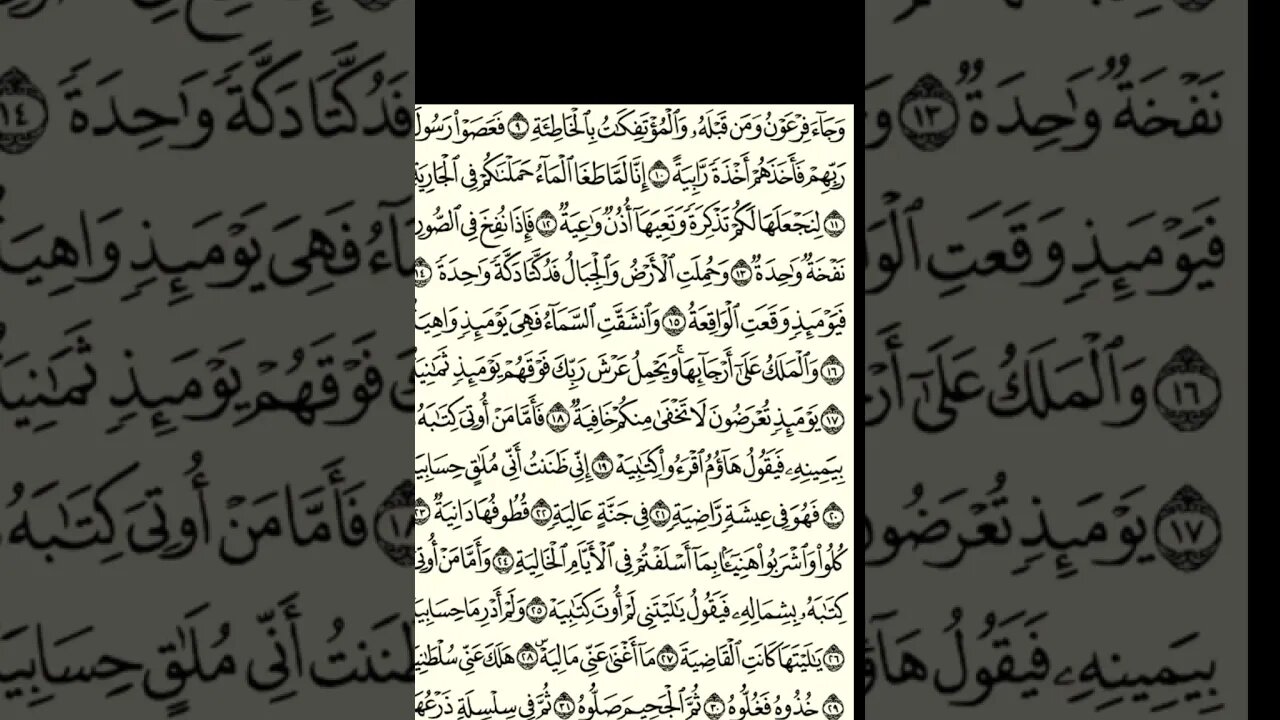 وَجَآءَ فِرْعَوْنُ وَمَن قَبْلَهُۥ وَٱلْمُؤْتَفِكَٰتُ بِٱلْخَاطِئَةِ ٩ فَعَصَوْا۟ رَسُولَ
رَبِّهِمْ فَأَخَذَهُمْ أَخْذَةً رَّابِيَةً ١٠ إِنَّا لَمَّا طَغَا ٱلْمَآءُ حَمَلْنَٰكُمْ فِى ٱلْجَارِيَةِ
١١ لِنَجْعَلَهَا لَكُمْ تَذْكِرَةً وَتَعِيَهَآ أُذُنٌ وَٰعِيَةٌ ١٢ فَإِذَا نُفِخَ فِى ٱلصُّورِ
نَفْخَةٌ وَٰحِدَةٌ ١٣ وَحُمِلَتِ ٱلْأَرْضُ وَٱلْجِبَالُ فَدُكَّتَا دَكَّةً وَٰحِدَةً ١٤
فَيَوْمَئِذٍ وَقَعَتِ ٱلْوَاقِعَةُ ١٥ وَٱنشَقَّتِ ٱلسَّمَآءُ فَهِىَ يَوْمَئِذٍ وَاهِيَةٌ
١٦ وَٱلْمَلَكُ عَلَىٰٓ أَرْجَآئِهَا ۚ وَيَحْمِلُ عَرْشَ رَبِّكَ فَوْقَهُمْ يَوْمَئِذٍ ثَمَٰنِيَةٌ
١٧ يَوْمَئِذٍ تُعْرَضُونَ لَا تَخْفَىٰ مِنكُمْ خَافِيَةٌ ١٨ فَأَمَّا مَنْ أُوتِىَ كِتَٰبَهُۥ
بِيَمِينِهِۦ فَيَقُولُ هَآؤُمُ ٱقْرَءُوا۟ كِتَٰبِيَهْ ١٩ إِنِّى ظَنَنتُ أَنِّى مُلَٰقٍ حِسَابِيَهْ
٢٠ فَهُوَ فِى عِيشَةٍ رَّاضِيَةٍ ٢١ فِى جَنَّةٍ عَالِيَةٍ ٢٢ قُطُوفُهَا دَانِيَةٌ ٢٣
كُلُوا۟ وَٱشْرَبُوا۟ هَنِيٓـًٔۢا بِمَآ أَسْلَفْتُمْ فِى ٱلْأَيَّامِ ٱلْخَالِيَةِ ٢٤ وَأَمَّا مَنْ أُوتِىَ
كِتَٰبَهُۥ بِشِمَالِهِۦ فَيَقُولُ يَٰلَيْتَنِى لَمْ أُوتَ كِتَٰبِيَهْ ٢٥ وَلَمْ أَدْرِ مَا حِسَابِيَهْ
٢٦ يَٰلَيْتَهَا كَانَتِ ٱلْقَاضِيَةَ ٢٧ مَآ أَغْنَىٰ عَنِّى مَالِيَهْ ۜ ٢٨ هَلَكَ عَنِّى سُلْطَٰنِيَهْ
٢٩ خُذُوهُ فَغُلُّوهُ ٣٠ ثُمَّ ٱلْجَحِيمَ صَلُّوهُ ٣١ ثُمَّ فِى سِلْسِلَةٍ ذَرْعُهَا